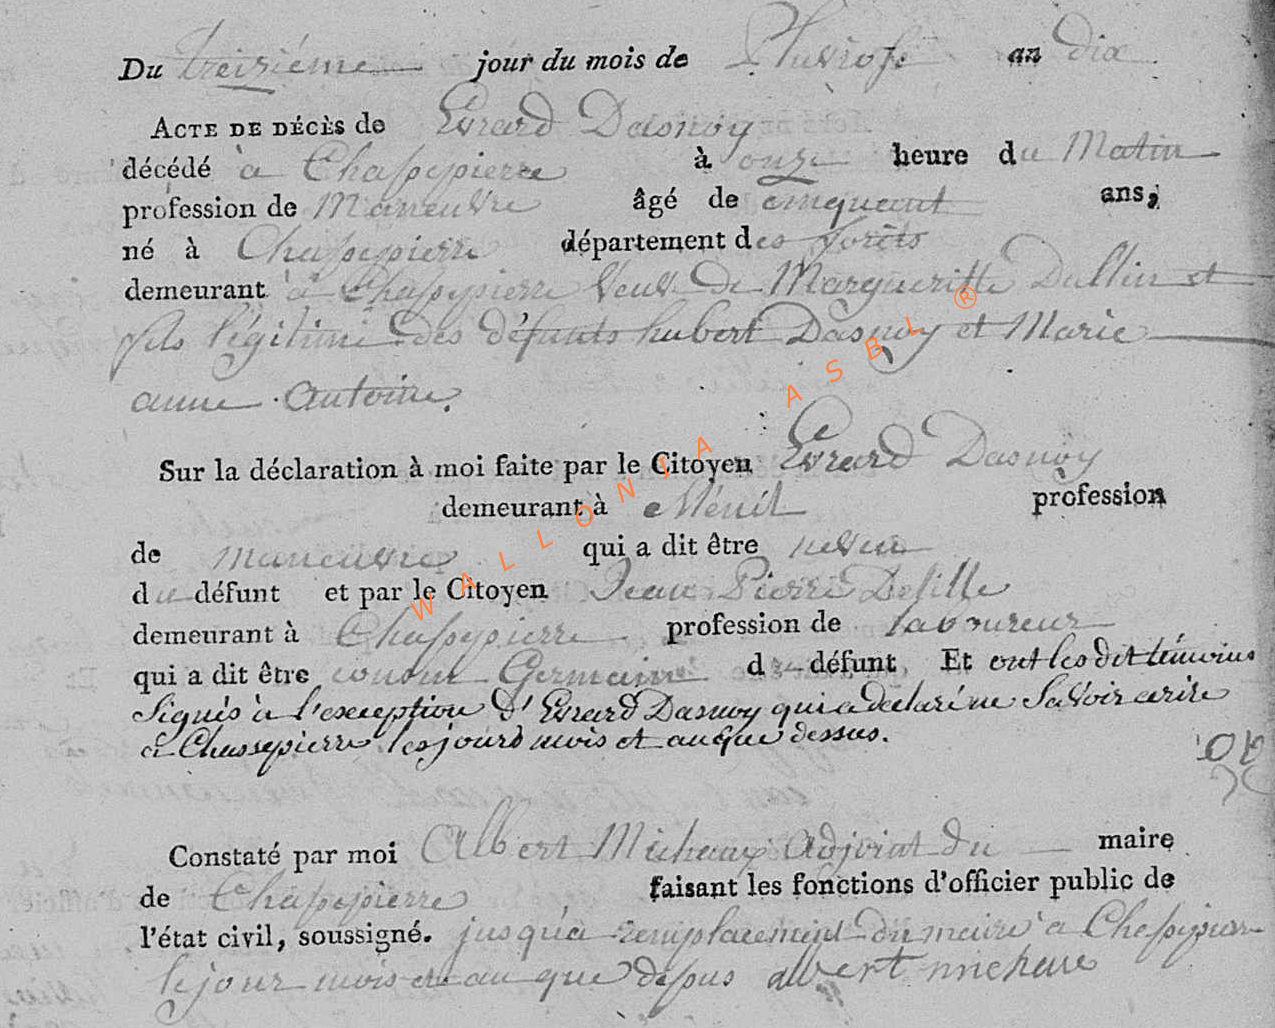 Du treiziéme jour du mois de Pluviose an dix
ACTE DE DÉCÈS de Evrard Dasnoy
décédé à Chassepierre à onze heure du Matin
profession de Maneuvre âgé de cinquant ans,
né à Chassepierre département des forêts
demeurant à Chassepierre Veuf de Margueritte Dullin et
fils légitime des défunts hubert Dasnoy et Marie
anne Antoine.
Sur la déclaration à moi faite par le Citoyen Evrard Dasnoy
demeurant à Menil profession
de maneuvre qui a dit être neveu
du défunt et par le Citoyen Jean Pierre
demeurant à Chassepierre profession de laboureur
qui a dit être cousin Germain d défunt Et ont les dit témoins
Signés à l'exception d'Evrard Dasnoy qui a declaré ne Savoir ecrire
à Chassepierre les jours mois et an que dessus.
Constaté par moi Albert Michaux Adjoint du maire
de Chassepierre faisant les fonctions d'officier public de
l'état civil, soussigné. jusqu'à remplacement du maire à Chassepierre
le jour mois et an que dessus albert
WALLONIA ASBL ®